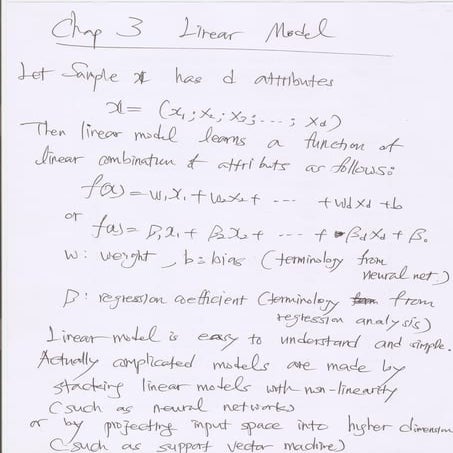 Chap 3 Linear Model
Let Sample x has d attributes
x = (x₁; x₂; x₃; ...; xd)
Then linear model learns a function of
linear combination of attributs as follows:
f(x) = w₁x₁ + w₂x₂ + ... + wdxd + b
or
f(x) = β₁x₁ + β₂x₂ + ... + βdxd + β₀
w: weight, b = bias (terminology from
neural net)
β: regression coefficient (terminology from
regression analysis)
Linear model is easy to understand and simple.
Actually complicated models are made by
stacking linear models with non-linearity
(such as neural networks)
or by projecting input space into higher dimension
(such as support vector machine)